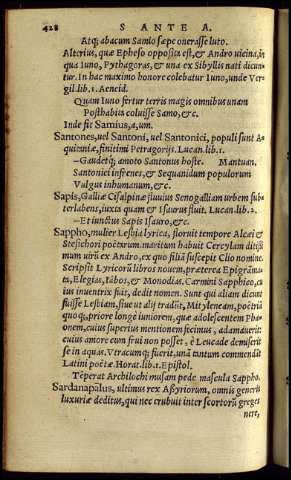 428 SANTE A.
Atq; abacum Samio sæpe onerasse luto.
Alterius, quæ Epheso opposita est, & Andro uicina, in
qua Iuno, Pythagoras, & una ex Sibyllis nati dicun
tur. In hac maximo honore colebatur Iuno, unde Ver
gil. lib. 1. Aeneid.
Quam Iuno fertur terris magis omnibus unam
Posthabita coluisse Samo, &c.
Inde fit Samius, a, um.
Santones, uel Santoni, uel Santonici, populi sunt A-
quitaniæ, finitimi Petragorijs. Lucan. lib. 1.
—Gaudetq; amoto Santonus hoste. Mantuan.
Santonici infrenes, & Sequanidum populorum
Vulgus inhumanum, &c.
Sapis, Galliæ Cisalpinæ fluuius Senogalliam urbem sub
terlabens, iuxta quam & Isaurus fluit. Lucan. lib. 2.
—Et iunctus Sapis Isauro, &c.
Sappho, mulier Lesbia lyrica, floruit tempore Alcæi &
Stesichori poëtarum. maritum habuit Cercylam ditissi
mum uirũ ex Andro, ex quo filiã suscepit Clio nomine.
Scripsit Lyricorũ libros nouem, præterea Epigrãma-
ta, Elegias, Iãbos, & Monodias. Carmini Sapphico, cu
ius inuentrix fuit, dedit nomen. Sunt qui aliam dicunt
fuisse Lesbiam, siue ut alij tradũt, Mitylenæam, poëtriã
quoq;, priore longè iuniorem, quæ adolescentem Pha-
onem, cuius superius mentionem fecimus, adamauerit:
cuius amore cum frui non posset, è Leucade demiserit
se in aquas. Vtracumq; fuerit, unã tantum commendãt
Latini poëtæ. Horat. lib. 1. Epistol.
Tẽperat Archilochi musam pede mascula Sappho.
Sardanapalus, ultimus rex Assyriorum, omnis generis
luxuriæ deditus, qui nec erubuit inter scortorũ greges
nere,